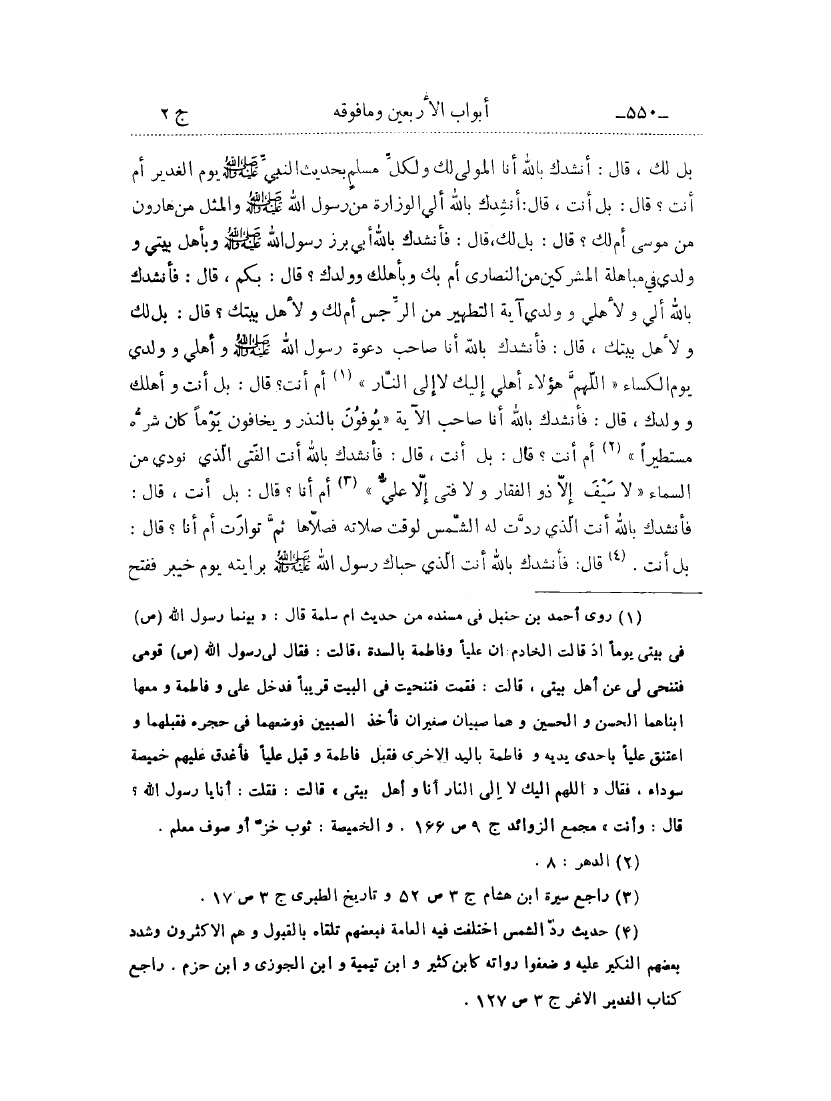 ـ۵۵۰ـ أبواب الأربعين ومافوقه ج ۲
بل لك ، قال : أنشدك بالله أنا المولى لك ولكلّ مسلم بحديث النبيّ ﷺ يوم الغدير أم
أنت ؟ قال : بل أنت ، قال : أنشدك بالله ألي الوزارة من رسول الله ﷺ والمثل من هارون
من موسى أم لك ؟ قال : بل لك، قال : فأنشدك بالله أبي برز رسول الله ﷺ وبأهل بيتي و
ولدي في مباهلة المشركين من النصارى أم بك وبأهلك وولدك ؟ قال : بكم ، قال : فأنشدك
بالله ألي و لأهلي و ولدي آية التطهير من الرِّجس أم لك و لأهل بيتك ؟ قال : بل لك
و لأهل بيتك ، قال : فأنشدك بالله أنا صاحب دعوة رسول الله ﷺ و أهلي و ولدي
يوم الكساء « اللّهمَّ هؤلاء أهلي إليك لا إلى النّار » (١) أم أنت؟ قال : بل أنت و أهلك
و ولدك ، قال : فأنشدك بالله أنا صاحب الآية «يُوفُونَ بالنذر و يخافون يَوْماً كان شرُّه
مستطيراً » (٢) أم أنت ؟ قال : بل أنت ، قال : فأنشدك بالله أنت الفتى الّذي نودي من
السماء « لا سَيْفَ إلّا ذو الفقار و لا فتى إلّا عليٌّ » (٣) أم أنا ؟ قال : بل أنت ، قال :
فأنشدك بالله أنت الّذي ردَّت له الشّمس لوقت صلاته فصلّاها ثمَّ توارت أم أنا ؟ قال :
بل أنت . (٤) قال: فأنشدك بالله أنت الّذي حباك رسول الله ﷺ برايته يوم خيبر ففتح
(١) روى أحمد بن حنبل فى مسنده من حديث ام سلمة قال : « بينما رسول الله (ص)
فى بيتى يوماً اذ قالت الخادم ان علياً وفاطمة بالسدة ،قالت : فقال لى رسول الله (ص) قومى
فتنحى لى عن أهل بيتى ، قالت : فقمت فتنحيت فى البيت قريباً فدخل على و فاطمة و معها
ابناهما الحسن و الحسين و هما صبيان صغيران فأخذ الصبيين فوضعهما فى حجره فقبلهما و
اعتنق علياً باحدى يديه و فاطمة باليد الاخرى فقبل فاطمة و قبل علياً فأغدق عليهم خميصة
سوداء ، فقال « اللهم اليك لا إلى النار أنا و أهل بيتى » قالت : فقلت : أنا يا رسول الله ؟
قال : وأنت » مجمع الزوائد ج ۹ ص ۱۶۶ . و الخميصة : ثوب خزّ أو صوف معلم .
(٢) الدهر : ٨ .
(٣) راجع سيرة ابن هشام ج ۳ ص ۵۲ و تاريخ الطبرى ج ۳ ص ۱۷ .
(۴) حديث ردّ الشمس اختلفت فيه العامة فبعضهم تلقاه بالقبول و هم الاكثرون وشدد
بعضهم النكير عليه و ضعفوا رواته كابن كثير و ابن تيمية و ابن الجوزى و ابن حزم . راجع
كتاب الغدير الاغر ج ۳ ص ۱۲۷ .